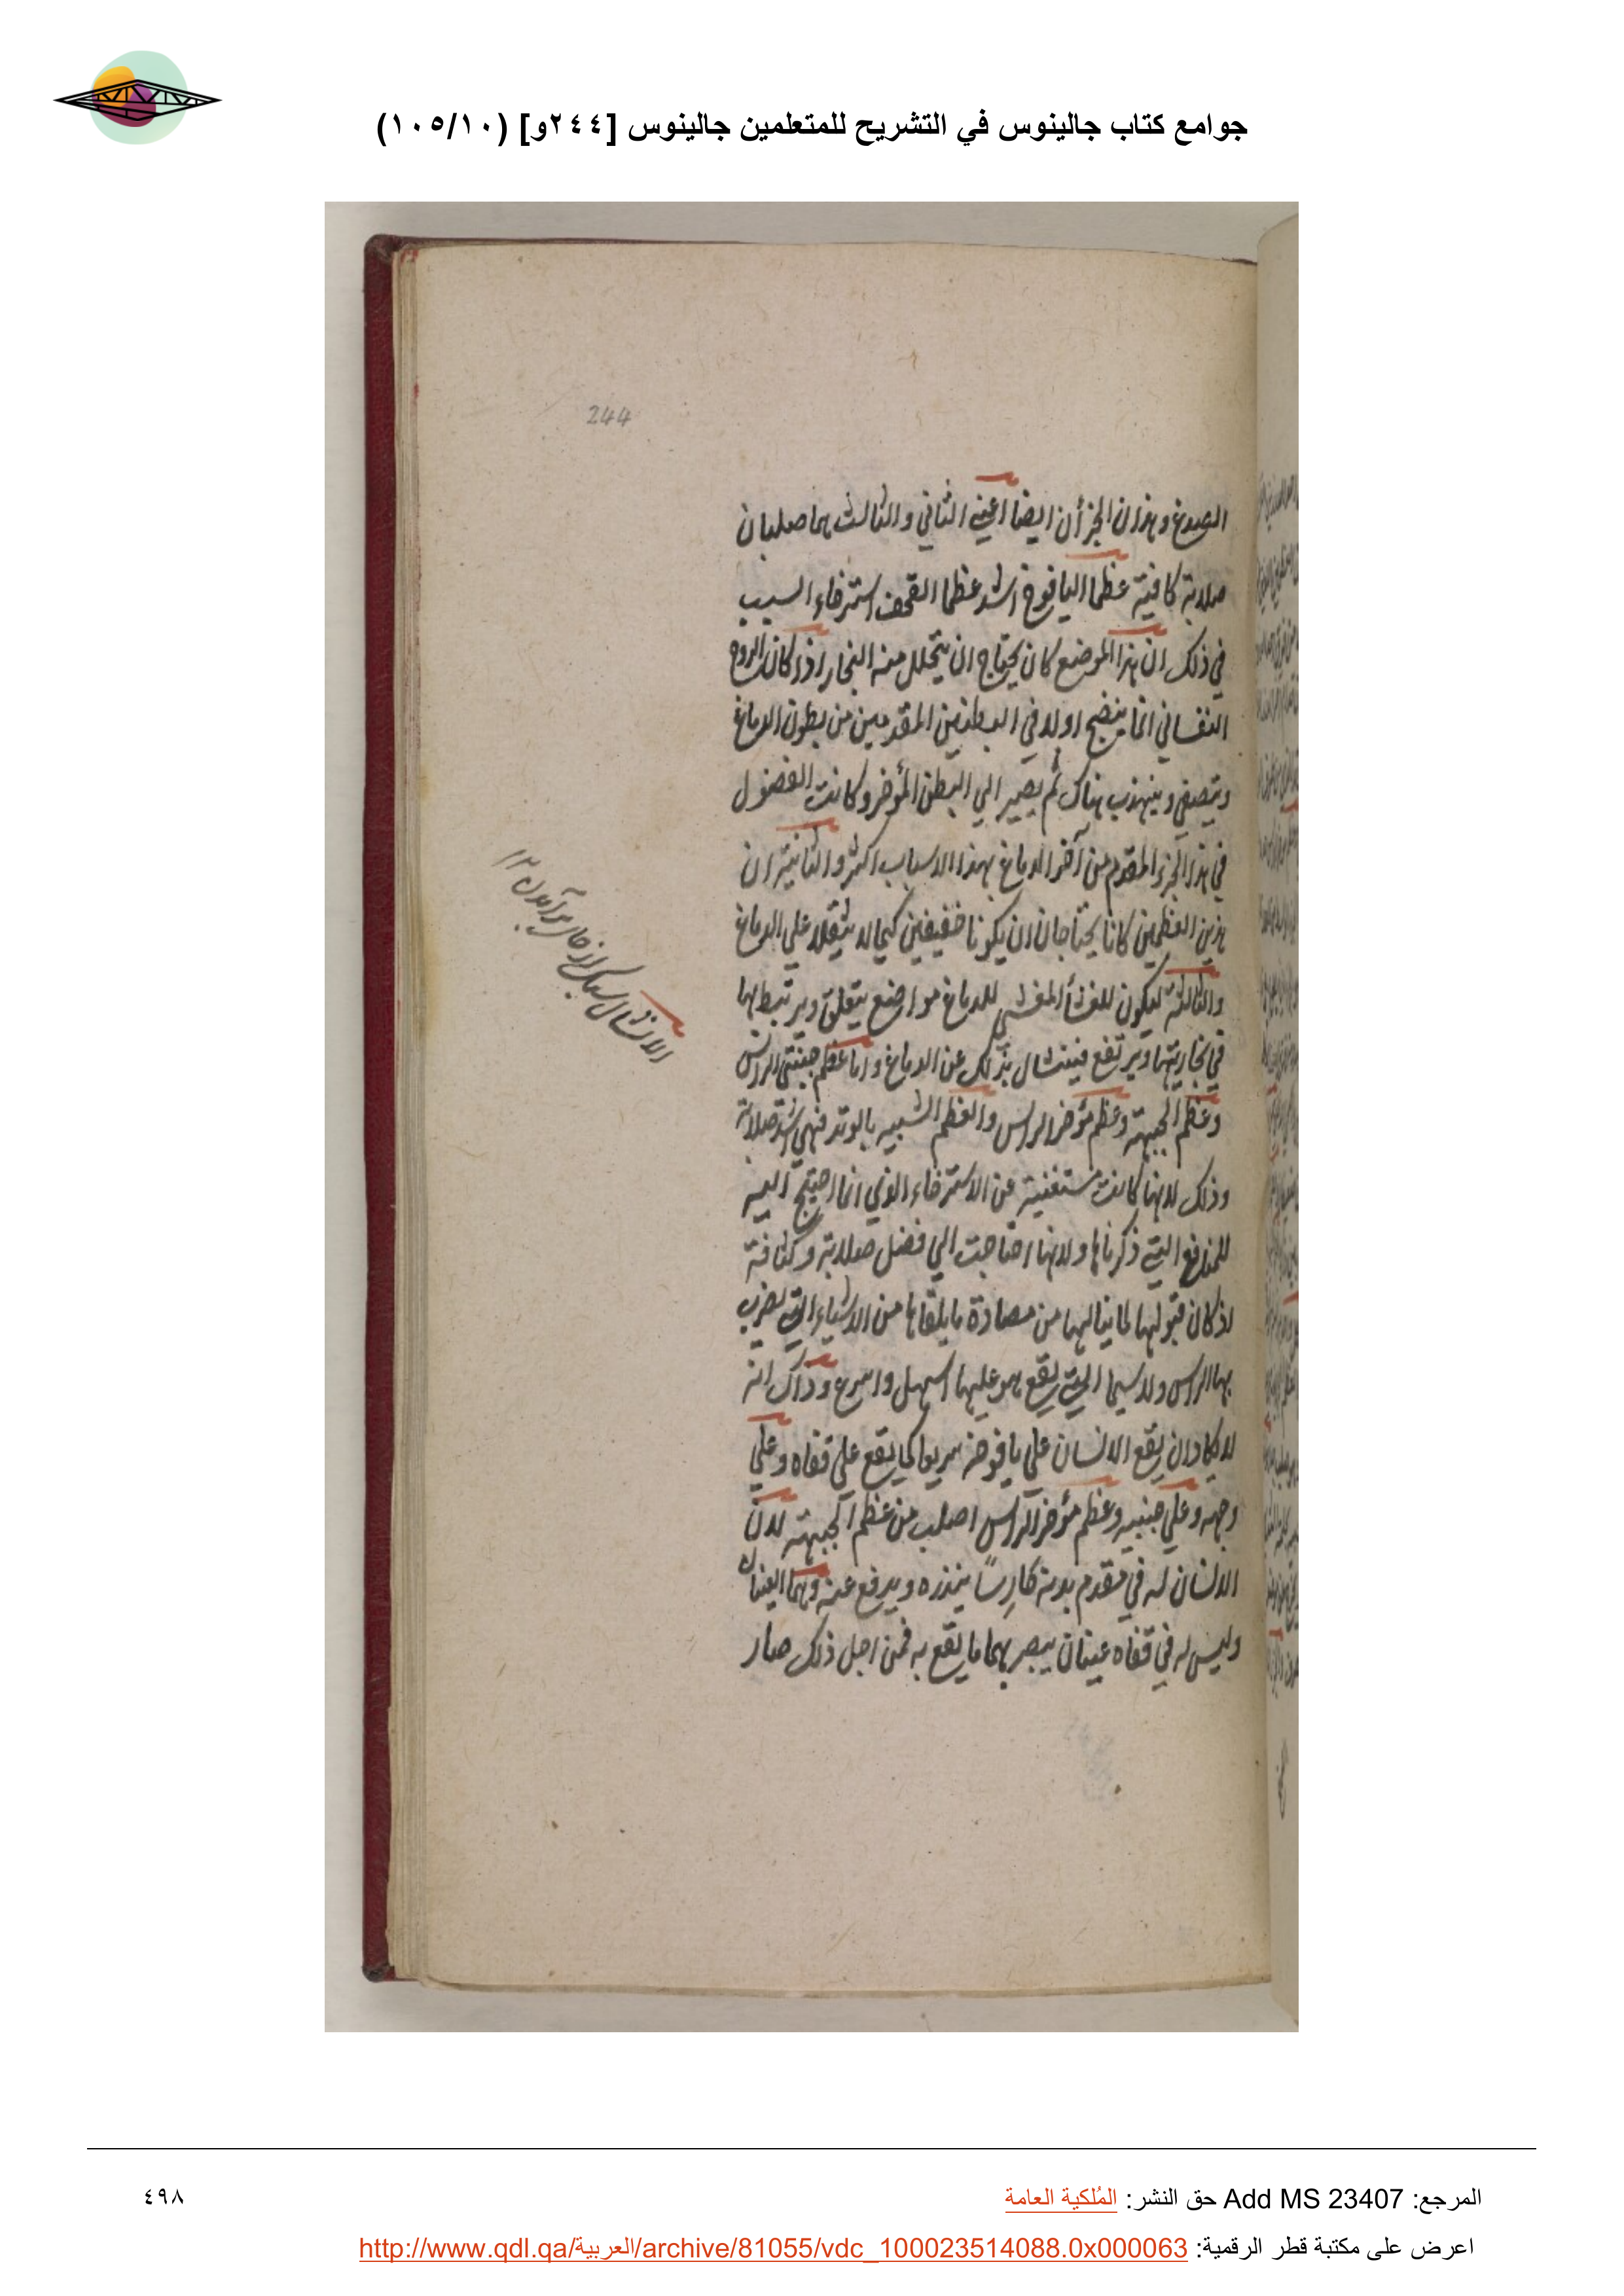 جوامع كتاب جالينوس في التشريح للمتعلمين جالينوس [٢٤٤و] (١٠٥/١٠)
244
الصدغ وهذان الجزأن ايضا اعني الثاني والثالث هما صلبان
صلابة كافية عظما اليافوخ اشد عظما القحف استرخاء السبب
في ذلك ان هذا الموضع كان يحتاج ان يتحلل منه البخار اذ كان الروح
النفساني انما ينضج اولا في البطنين المقدمين من بطون الدماغ
ويتصفي ويتهذب هناك ثم يصير الي البطن المؤخر وكانت الفضول
في هذا الجزء المقدم من آخر الدماغ بهذا الاسباب اكثر والثانية ان
هذين العظمين كانا يحتاجان ان يكونا خفيفين كيما لا يثقلا علي الدماغ
والثالثة ليكون للغشأ المغشي للدماغ مواضع يتعلق ويرتبط بها
في تجاريتها ويرتفع فينشال بذلك عن الدماغ واما عظم جنبتي الراس
وعظم الجبهة وعظم مؤخر الراس والعظم الشبيه بالوتد فهي اشد صلابة
وذلك لانها كانت مستغنية عن الاسترخاء الذي انما احتيج اليه
للمنافع التي ذكرناها ولانها احتاجت الي فضل صلابة وكثافة
اذ كان قبولها لما ينالها من مصادة ما يلقاها من الاشياء التي يضرب
بها الراس ولا سيما التي يقع هو عليها اسهل واسرع وذاك انه
لا يكاد ان يقع الانسان علي يافوخه سريعا كما يقع علي قفاه وعلي
وجهه وعلي جنبيه وعظم مؤخر الراس اصلب من عظم الجبهة لان
الانسان له في مقدم بدنه حارسًا ينذره ويدفع عنه وهما العينان
وليس له في قفاه عينان يبصر بهما ما يقع به فمن اجل ذلك صار
المرجع: Add MS 23407 حق النشر: المُلكية العامة
٤٩٨
اعرض على مكتبة قطر الرقمية: http://www.qdl.qa/العربية/archive/81055/vdc_100023514088.0x000063